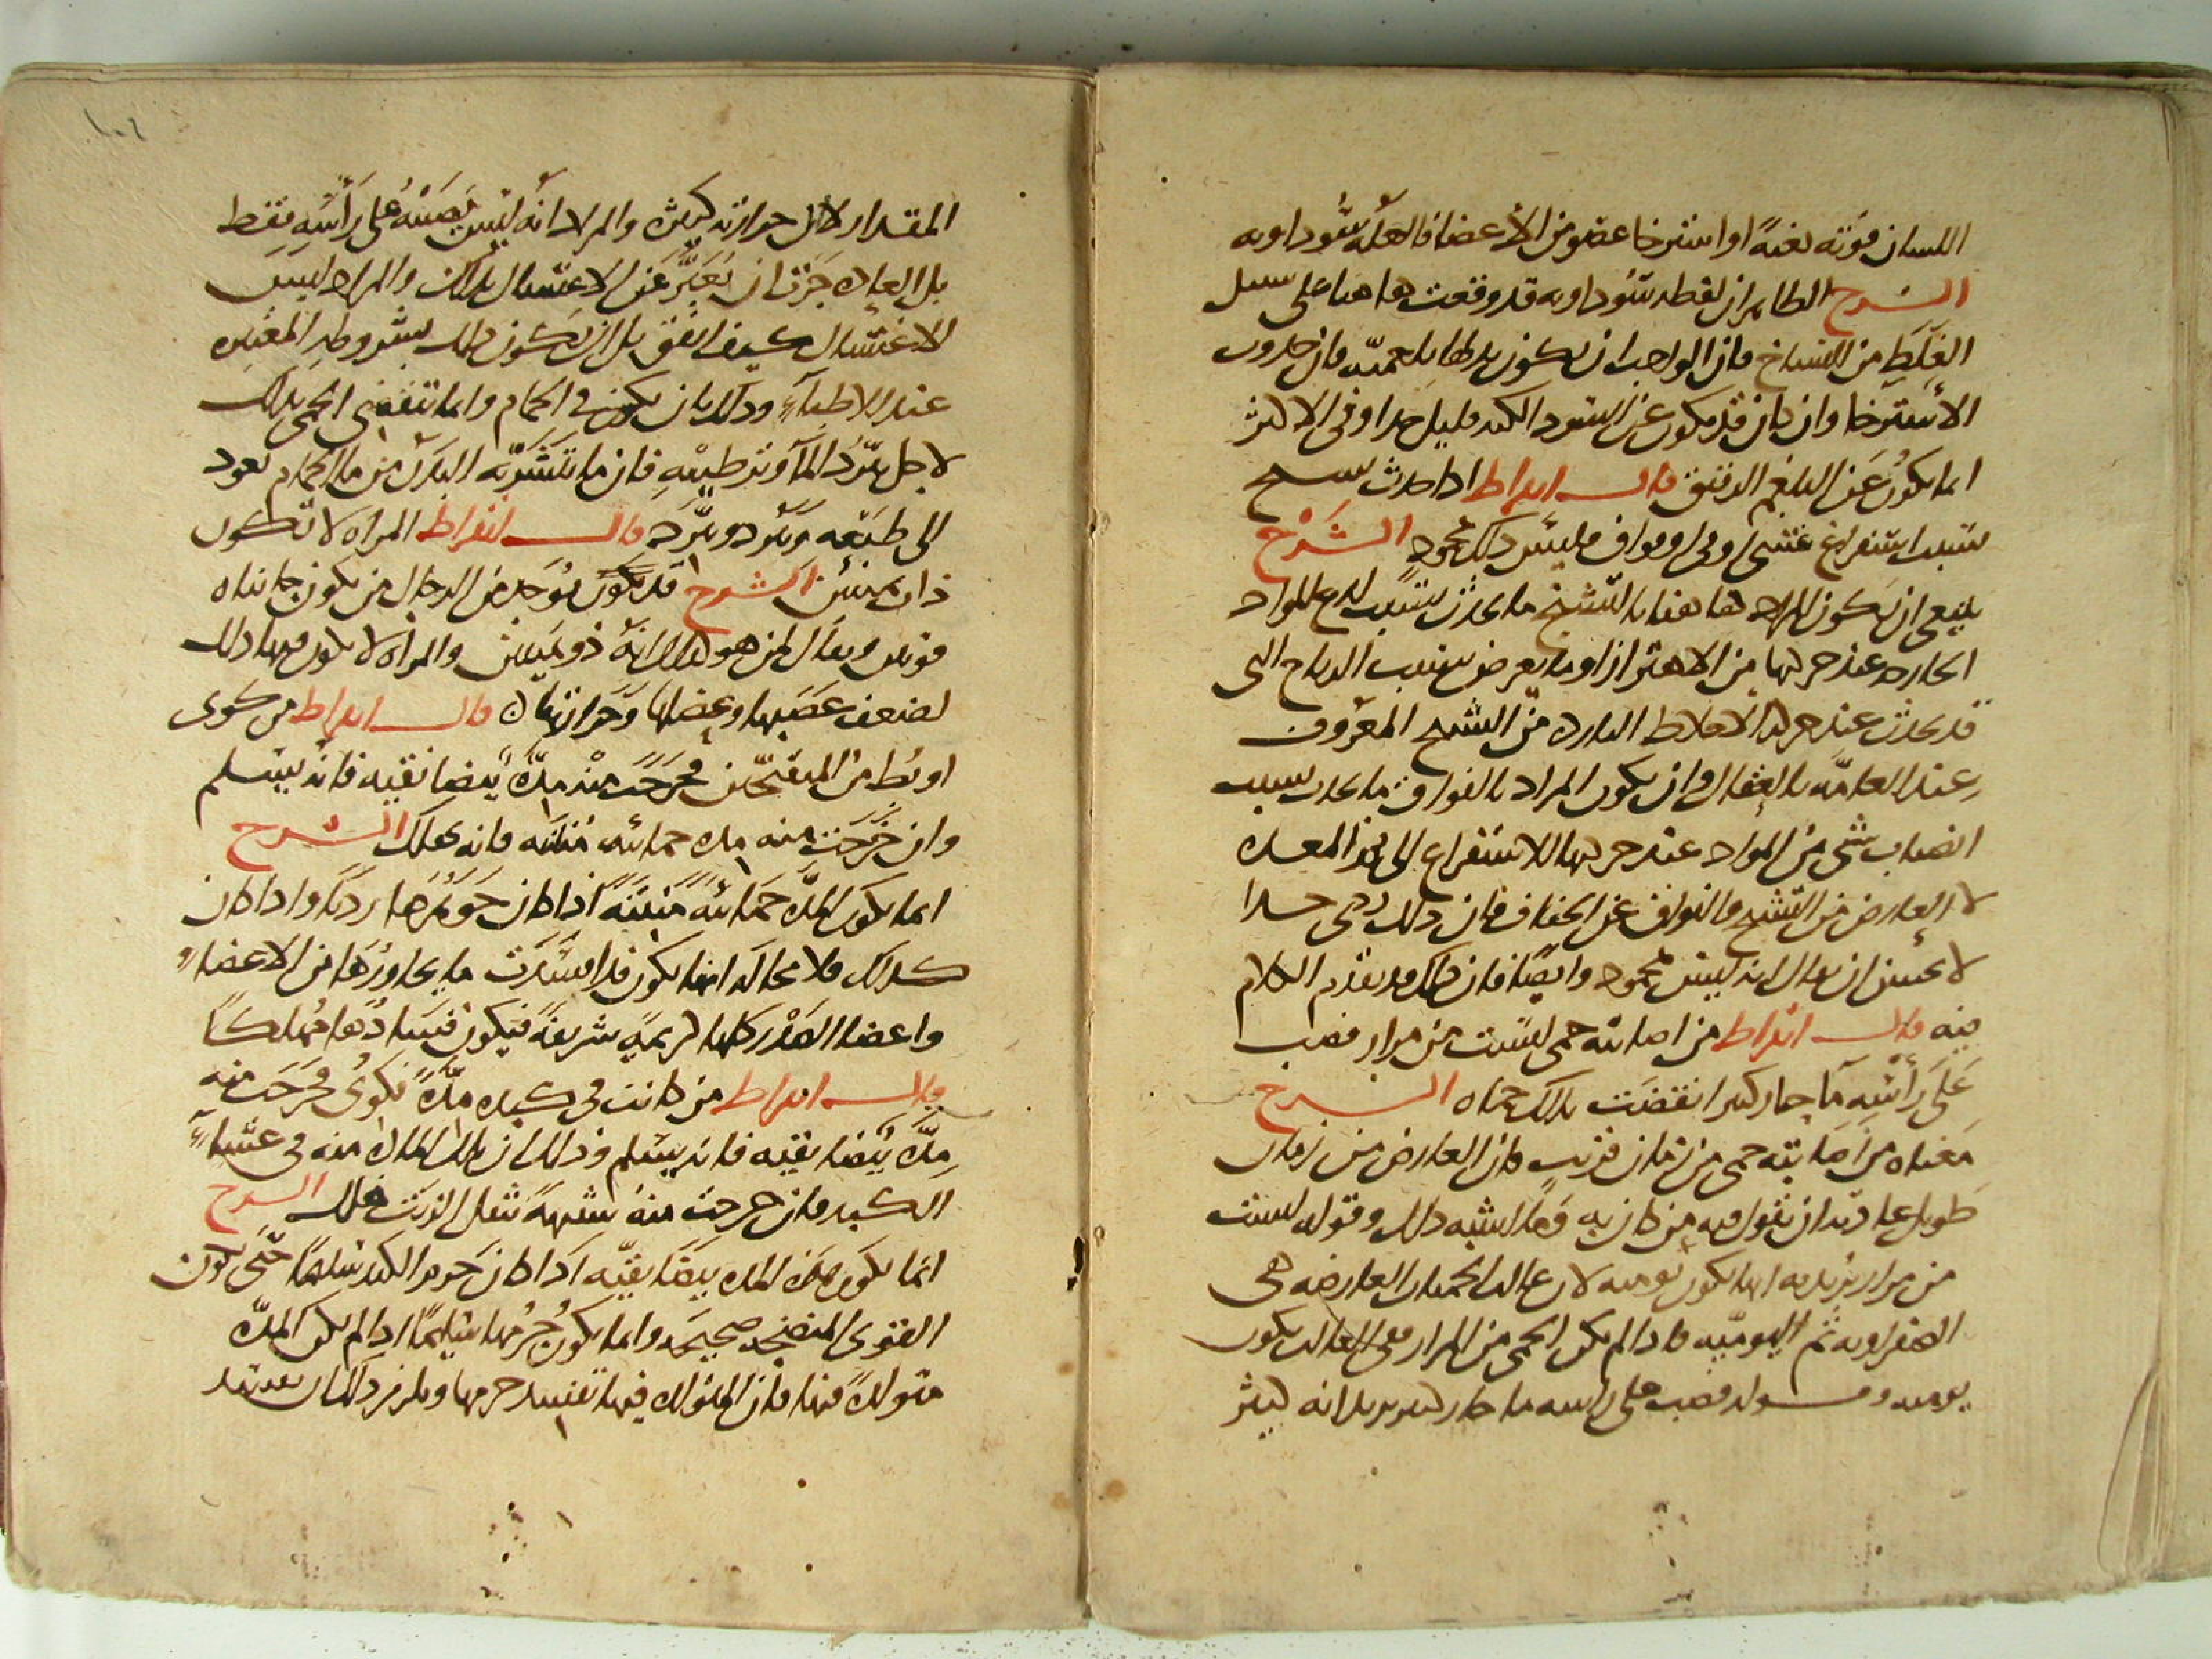 اللسان قوته بغتةً او استرخا عضو من الأعضا فالعلة سوداويه
الشرح الظاهر ان لفظه سوداويه قد وقعت هاهنا على سبيل
الغلط من النساخ فان الواجب ان يكون بدلها بلغميّه فان حدوث
الأسترخا وان كان قد يكون عن السودا لكنه قليل جدا وفى الاكثر
انما يكون عن البلغم الرقيق قال ابقراط اذا حدث تشنج
بسبب استفراغ عشى او فى او فواق فليس ذلك بمحمود الشرح
ينبغى ان يكون المراد هاهنا بالتشنج ما يحدث بسبب لدع المواد
الحاره عند حركتها من الاهتزاز او ما يعرض بسبب الرياح التى
قد تحدث عند حركه الاخلاط البارده من التشنج المعروف
عند العامّه بالعقال وان يكون المراد بالفواق ما يحدث بسبب
انصباب شى من المواد عند حركتها للاستفراغ الى فم المعده
لا العارض من التشنج والفواق عن الجفاف فان ذلك ردى جدا
لا يحسن ان يقال انه ليس بمحمود وايضًا فان ذلك قد تقدم الكلام
فيه قال ابقراط من اصابته حمى ليست من مرار فصب
على رأسه مآ حار كثير انقضت بذلك حماه الشرح
معناه من اصابته حمى من زمان قريب فان العارض من زمان
طويل عادته ان يقول فيه من كان به وما اشبه ذلك وقوله ليست
من مرار يريد به انها تكون يوميه لان غالب الحميات العارضه هى
الصفراويه ثم اليوميّه فاذا لم يكن الحمى من المرار ففى الغالب تكون
يوميه وقوله فصب على راسه ما حار كثير يريد انه كثير
المقدار لا ان حرارته كثيرة والمراد انه ليس يصبّه على رأسه فقط
بل العاده جرت ان يعبّر عن الاغتسال بذلك والمراد ليس
الاغتسال كيف اتفق بل ان يكون ذلك بشروطه المعتبره
عند الاطبآء وذلك بان يكون فى الحمام وانما تنقضى الحمى بذلك
لاجل تبرّد المآ وترطيبه فان ما يتشرّبه البدن من ما الحمام يعود
الى طبعه ويبرد ويبرّد قال ابقراط المراه لا تكون
ذات يمينين الشرح قد يوجد من الرجال من يكون جانباه
قويين ويقال لمن هو كذلك انه ذو يمينين والمرأه لا يكون فيها ذلك
لضعف عصبها وعضلها وحرارتها قال ابقراط من كوى
او بط من المتقيّحين فخرجت منه مدّة بيضا نقيه فانه يسلم
وان خرجت منه مده حمائيه منتنه فانه يهلك الشرح
انما تكون المدّة حمائيّة منتنة اذا كان جوهرها رديًا واذا كان
كذلك فلا محاله انها يكون قد افسدت ما يجاورها من الاعضاء
واعضا الصدر كلها كريمة شريفة فيكون فسادها مهلكًا
قال ابقراط من كانت فى كبده مدّة فكوى فخرجت منه
مدّة بيضا نقيه فانه يسلم وذلك ان تلك المدة منه فى غشاء
الكبد فان خرجت منه شبيهة بثفل الزيت هلك الشرح
انما تكون هذه المده بيضا نقيّه اذا كان جرم الكبد سليمًا حتى تكون
القوى المنضجه صحيحه وانما يكون جرمها سليمًا اذا لم يكن المدّة
متولدةً فيها فان المتولده فيها تفسد جرمها ويلزم ذلك ان